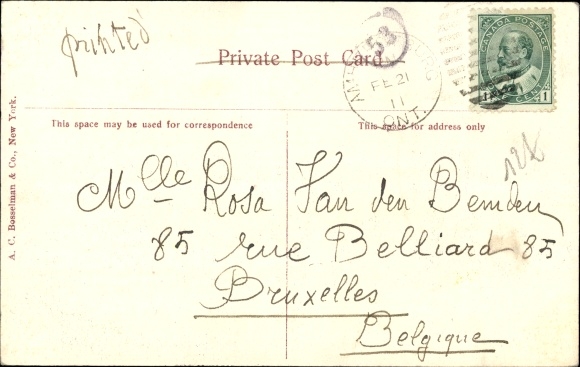 printed
Private Post Card
53
FE 21
11
ONT.
CANADA POSTAGE
1 CENT 1
This space may be used for correspondence
This space for address only
128
Mlle Rosa Van den Bemden
85 rue Belliard 85
Bruxelles
Belgique
A. C. Bosselman & Co., New York.